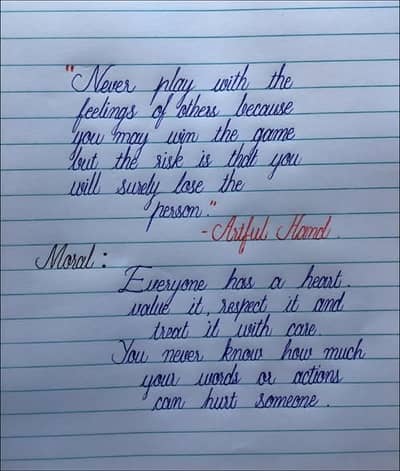 "Never play with the
feelings of others because
you may win the game
but the risk is that you
will surely lose the
person."
- Artful Hand.
Moral :
Everyone has a heart.
value it, respect it and
treat it with care.
You never know how much
your words or actions
can hurt someone.